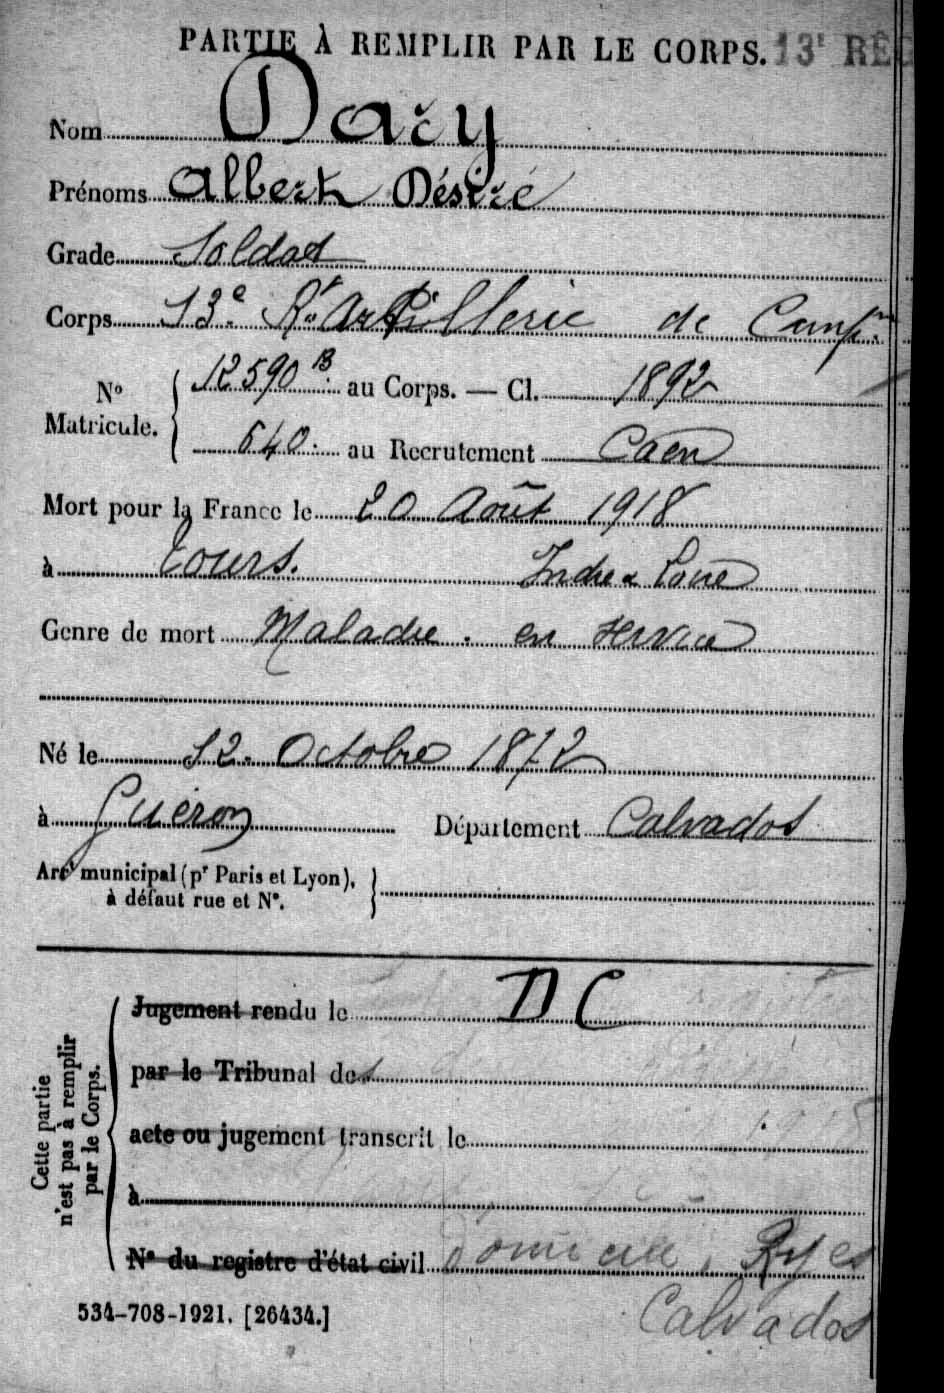 PARTIE À REMPLIR PAR LE CORPS. 13e RÉG
Nom Dary
Prénoms Albert Désiré
Grade Soldat
Corps 13e Rt Artillerie de Campne
No Matricule. { 12590 B. au Corps. — Cl. 1892
640. au Recrutement Caen
Mort pour la France le 20 Août 1918
à Tours. Indre & Loire
Genre de mort Maladie. en service
Né le 12. Octobre 1872
à Guéron Département Calvados
Arrt municipal (pr Paris et Lyon),
à défaut rue et N°.
Cette partie n'est pas à remplir par le Corps.
Jugement rendu le D C
par le Tribunal de
acte ou jugement transcrit le
à
N° du registre d'état civil domicile, Ryes
Calvados
534-708-1921. [26434.]